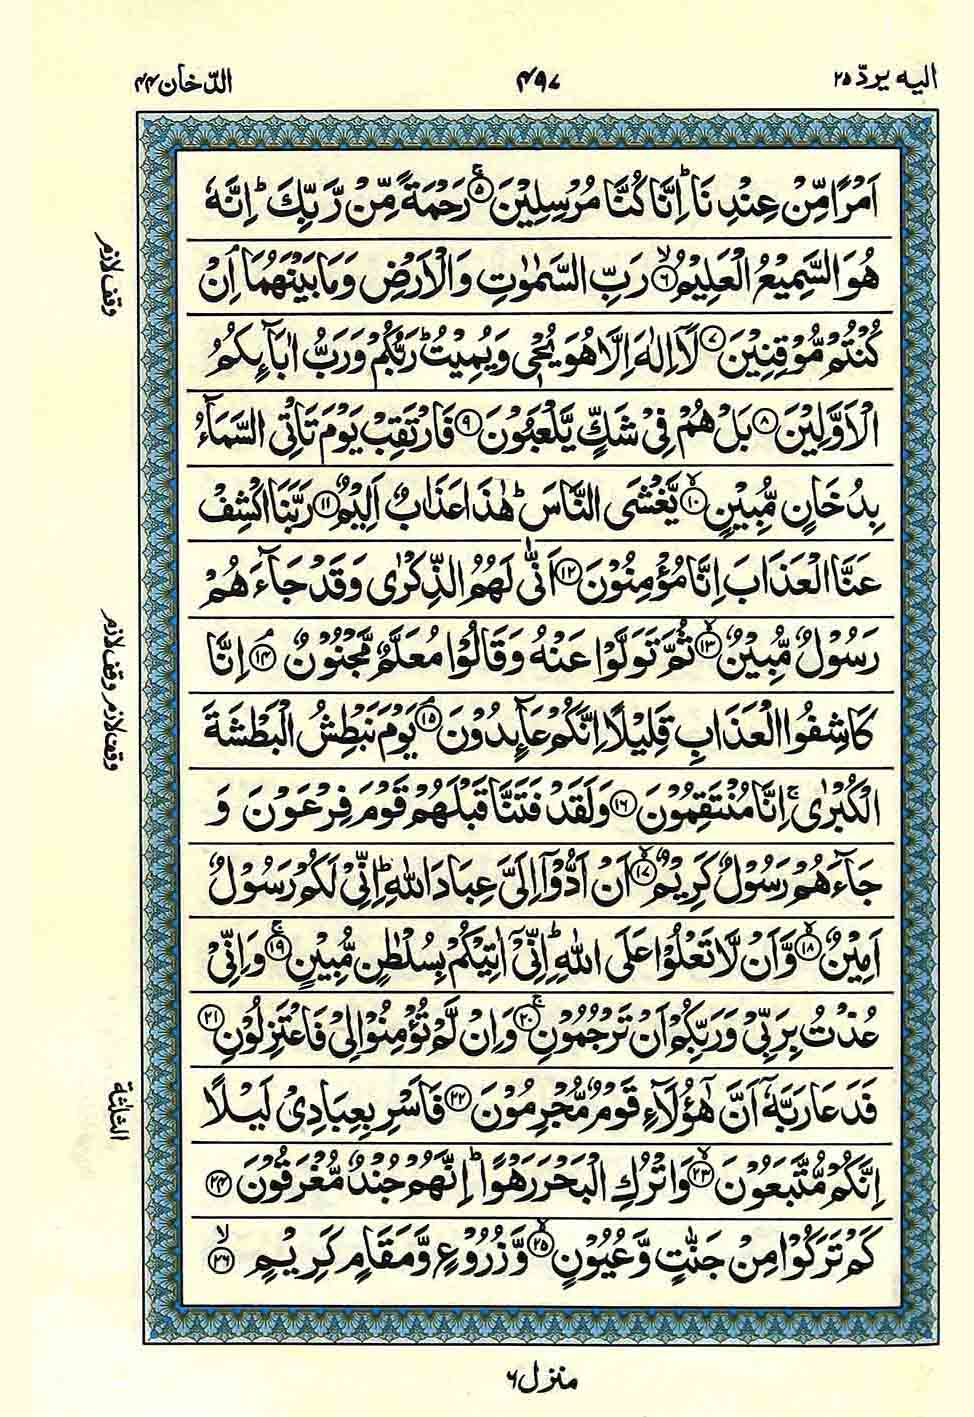 الیه یردّ ۲۵
۴۹۷
الدّخان ۴۴
اَمْرًا مِّنْ عِنْدِنَا ؕ اِنَّا كُنَّا مُرْسِلِیْنَ ۚ‏﴿۵﴾ رَحْمَةً مِّنْ رَّبِّكَ ؕ اِنَّهٗ
هُوَ السَّمِیْعُ الْعَلِیْمُ ۙ‏﴿۶﴾ رَبِّ السَّمٰوٰتِ وَالْاَرْضِ وَمَا بَیْنَهُمَا ۘ اِنْ
كُنْتُمْ مُّوْقِنِیْنَ ﴿۷﴾ لَاۤ اِلٰهَ اِلَّا هُوَ یُحْیٖ وَیُمِیْتُ ؕ رَبُّكُمْ وَرَبُّ اٰبَآىِٕكُمُ
الْاَوَّلِیْنَ ﴿۸﴾ بَلْ هُمْ فِیْ شَكٍّ یَّلْعَبُوْنَ ﴿۹﴾ فَارْتَقِبْ یَوْمَ تَاْتِی السَّمَآءُ
بِدُخَانٍ مُّبِیْنٍ ۙ‏﴿۱۰﴾ یَّغْشَی النَّاسَ ؕ هٰذَا عَذَابٌ اَلِیْمٌ ﴿۱۱﴾ رَبَّنَا اكْشِفْ
عَنَّا الْعَذَابَ اِنَّا مُؤْمِنُوْنَ ﴿۱۲﴾ اَنّٰی لَهُمُ الذِّكْرٰی وَقَدْ جَآءَهُمْ
رَسُوْلٌ مُّبِیْنٌ ۙ‏﴿۱۳﴾ ثُمَّ تَوَلَّوْا عَنْهُ وَقَالُوْا مُعَلَّمٌ مَّجْنُوْنٌ ۘ‏﴿۱۴﴾ اِنَّا
كَاشِفُوا الْعَذَابِ قَلِیْلًا اِنَّكُمْ عَآىِٕدُوْنَ ۘ‏﴿۱۵﴾ یَوْمَ نَبْطِشُ الْبَطْشَةَ
الْكُبْرٰی ۚ اِنَّا مُنْتَقِمُوْنَ ﴿۱۶﴾ وَلَقَدْ فَتَنَّا قَبْلَهُمْ قَوْمَ فِرْعَوْنَ وَ
جَآءَهُمْ رَسُوْلٌ كَرِیْمٌ ۙ‏﴿۱۷﴾ اَنْ اَدُّوْۤا اِلَیَّ عِبَادَ اللّٰهِ ؕ اِنِّیْ لَكُمْ رَسُوْلٌ
اَمِیْنٌ ۙ‏﴿۱۸﴾ وَّاَنْ لَّا تَعْلُوْا عَلَی اللّٰهِ ؕ اِنِّیْۤ اٰتِیْكُمْ بِسُلْطٰنٍ مُّبِیْنٍ ۚ‏﴿۱۹﴾ وَاِنِّیْ
عُذْتُ بِرَبِّیْ وَرَبِّكُمْ اَنْ تَرْجُمُوْنِ ۚ‏﴿۲۰﴾ وَاِنْ لَّمْ تُؤْمِنُوْا لِیْ فَاعْتَزِلُوْنِ ﴿۲۱﴾
فَدَعَا رَبَّهٗۤ اَنَّ هٰۤؤُلَآءِ قَوْمٌ مُّجْرِمُوْنَ ﴿۲۲﴾ فَاَسْرِ بِعِبَادِیْ لَیْلًا
اِنَّكُمْ مُّتَّبَعُوْنَ ۙ‏﴿۲۳﴾ وَاتْرُكِ الْبَحْرَ رَهْوًا ؕ اِنَّهُمْ جُنْدٌ مُّغْرَقُوْنَ ﴿۲۴﴾
كَمْ تَرَكُوْا مِنْ جَنّٰتٍ وَّعُیُوْنٍ ۙ‏﴿۲۵﴾ وَّزُرُوْعٍ وَّمَقَامٍ كَرِیْمٍ ۙ‏﴿۲۶﴾
وقف لازم
وقف لازم وقف لازم
الثلثة
منزل ۶